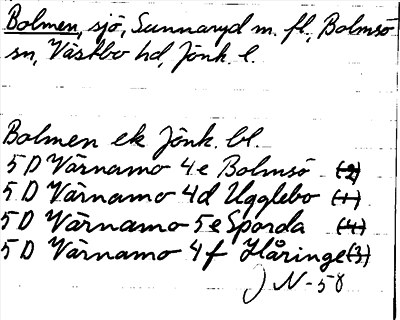 Bolmen, sjö, Sunnaryd m. fl., Bolmsö
sn, Västbo hd, Jönk. l.
Bolmen ek Jönk. bl.
5 D Värnamo 4e Bolmsö (2)
5 D Värnamo 4d Ugglebo (1)
5 D Värnamo 5e Sporda (4)
5 D Värnamo 4f Håringe (3)
J N-58